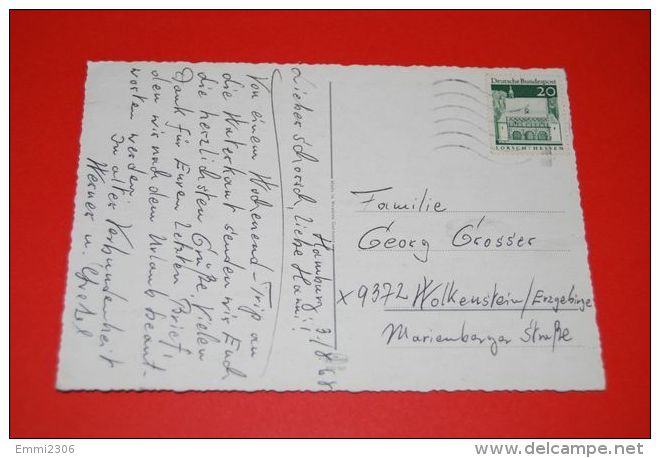 Hamburg, 3/8 68
Lieber Schorsch, liebe Hanni!
Von einem Wochenend-Trip an
die Waterkant senden wir Euch
die herzlichsten Grüße. Vielen
Dank für Euren letzten Brief,
den wir nach dem Urlaub beant-
worten werden.
In alter Verbundenheit
Werner u.
Deutsche Bundespost
20
LORSCH/HESSEN
Familie
Georg Grosser
x 9372 Wolkenstein/Erzgebirge
Marienberger Straße
Emmi2306
delcampe.net